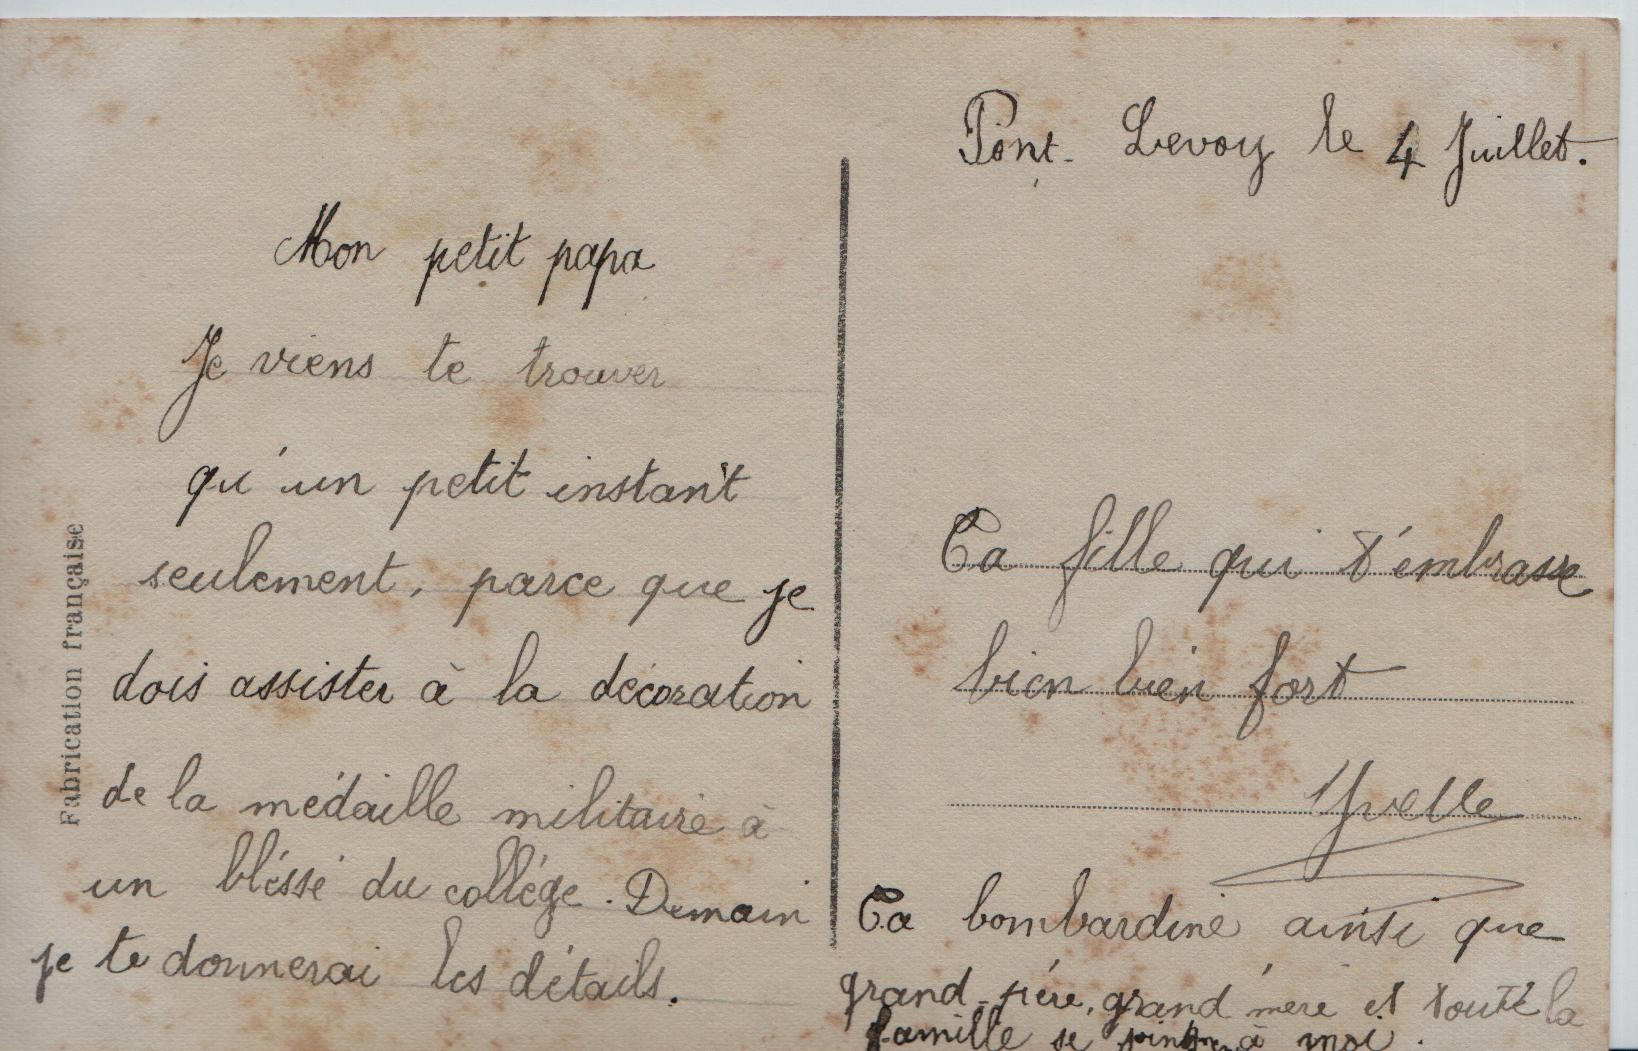 Pont-Levoy le 4 Juillet.
Mon petit papa
Je viens te trouver
qu'un petit instant
seulement, parce que je
dois assister à la décoration
de la médaille militaire à
un bléssé du collége. Demain
je te donnerai les détails.
Fabrication française
Ta fille qui t'embrasse
bien bien fort
Yvelle
Ta bombardine ainsi que
grand-père, grand'mère et toute la
famille se joingnent à moi.